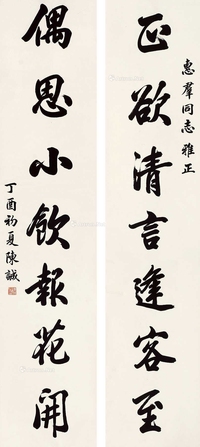 惠羣同志雅正
正欲清言逢客至
偶思小飲報花開
丁酉初夏陳誠